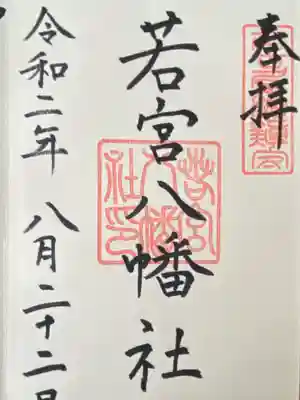 奉拝
若宮八幡社
若宮八幡社印
令和二年 八月二十二日